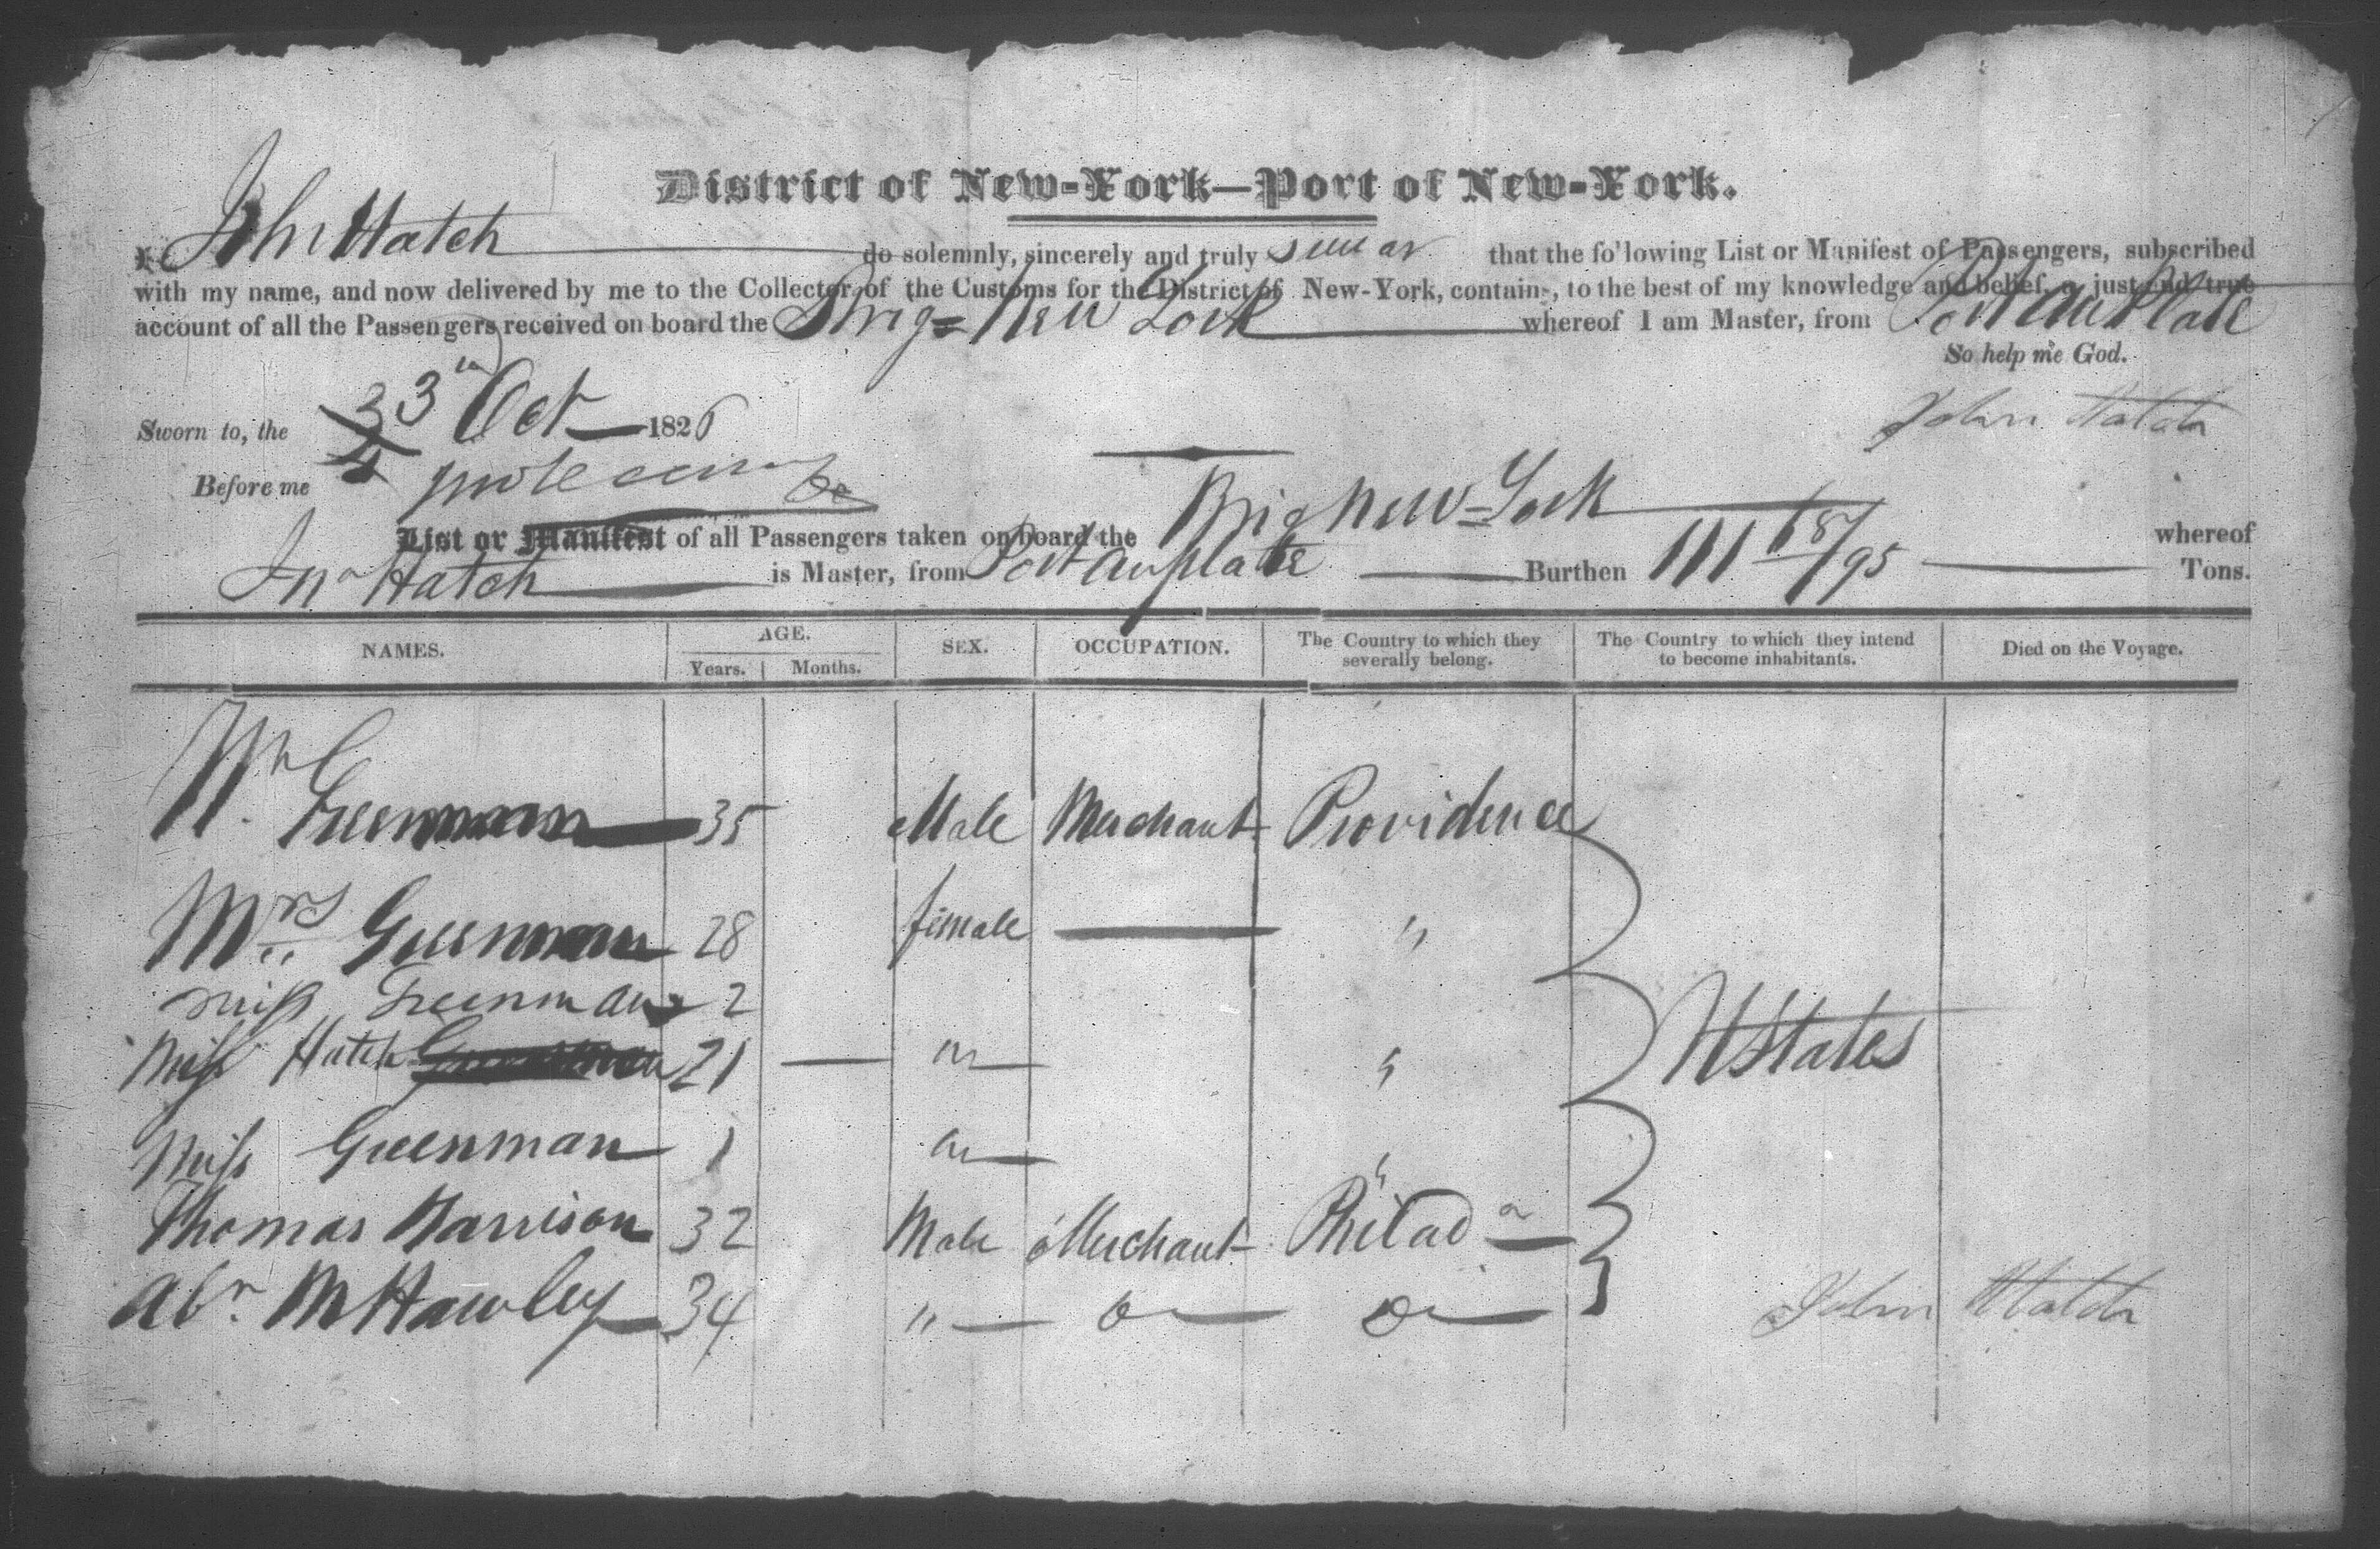 District of New-York—Port of New-York.
I John Hatch do solemnly, sincerely and truly swear that the following List or Manifest of Passengers, subscribed
with my name, and now delivered by me to the Collector of the Customs for the District of New-York, contains, to the best of my knowledge and belief, a just and true
account of all the Passengers received on board the Brig New York whereof I am Master, from Port au Plate
So help me God.
Sworn to, the 3 Oct 1826
John Hatch
Before me
List or Manifest of all Passengers taken on board the Brig New-York whereof
Jno Hatch is Master, from Port au plate Burthen 111 68/95 Tons.
NAMES. AGE. SEX. OCCUPATION. The Country to which they severally belong. The Country to which they intend to become inhabitants. Died on the Voyage.
Years. Months.
Greenman 35 Male Merchant Providence
Mrs Greenman 28 female — "
Miss Greenman 2
Miss Hatch 21 — "
U States
Miss Greenman 1 "
Thomas Harrison 32 Male Merchant Philada
Abr. M Hawley 34 " Do Do
John Hatch